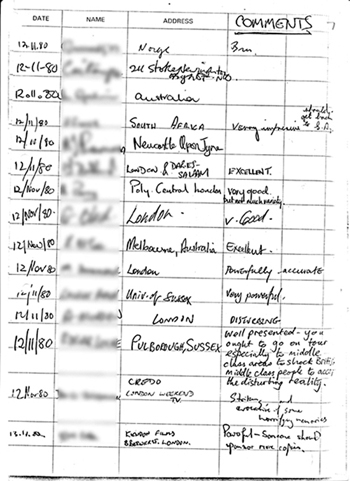 DATE NAME ADDRESS COMMENTS
12.11.80 Norge
12-11-80
australia
12/11/80 SOUTH AFRICA Very impressive should get back to S.A.
12/11/80 Newcastle Upon Tyne
12/11/80 LONDON & DARES-SALAAM EXCELLENT.
12/Nov/80 Poly. Central London Very good
12/Nov/80 London. v. Good.
12/Nov/80 Melbourne, Australia Excellent.
12/Nov/80 London Powerfully accurate
12/11/80 Univ. of Sussex Very powerful.
12/11/80 LONDON DISTURBING
12/11/80 PULBOROUGH, SUSSEX Well presented - you
ought to go on tour
especially to middle
class areas to shock British
middle class people to
the disturbing reality.
12 Nov 80 LONDON WEEKEND TV Striking and
evocative of some
horrifying memories
FILMS LONDON. Powerful - Someone should
sponsor more copies.